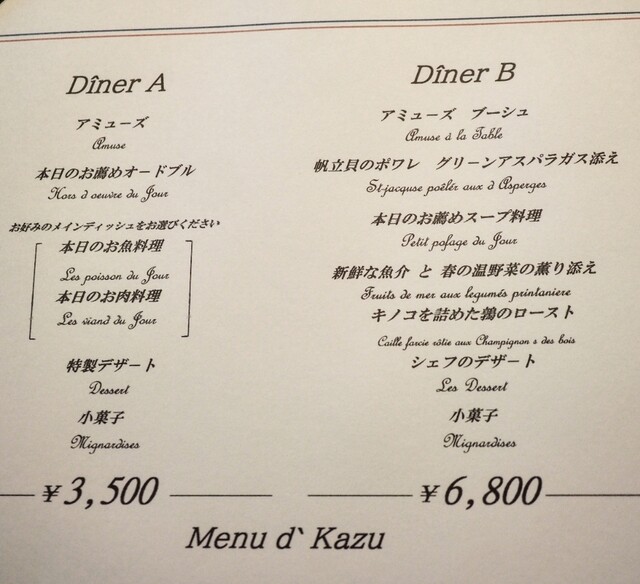 Dîner A
アミューズ
Amuse
本日のお薦めオードブル
Hors d oeuvre du Jour
お好みのメインディッシュをお選びください
本日のお魚料理
Les poisson du Jour
本日のお肉料理
Les viand du Jour
特製デザート
Dessert
小菓子
Mignardises
¥3,500
Dîner B
アミューズ ブーシュ
Amuse à la Table
帆立貝のポワレ グリーンアスパラガス添え
St-jacquse poêlér aux d Asperges
本日のお薦めスープ料理
Petit pofage du Jour
新鮮な魚介 と 春の温野菜の薫り添え
Fruits de mer aux legumés printaniere
キノコを詰めた鶉のロースト
Caille farcie rôtie aux Champignon s des bois
シェフのデザート
Les Dessert
小菓子
Mignardises
¥6,800
Menu d` Kazu